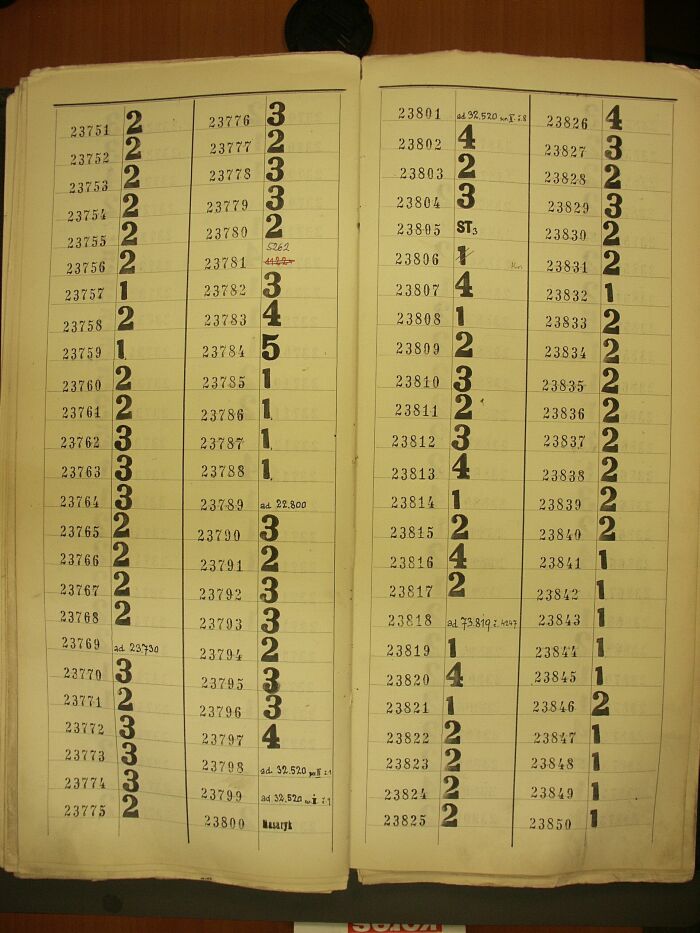 23751 2
23752 2
23753 2
23754 2
23755 2
23756 2
23757 1
23758 2
23759 1
23760 2
23761 2
23762 3
23763 3
23764 3
23765 2
23766 2
23767 2
23768 2
23769 ad 23.730
23770 3
23771 2
23772 3
23773 3
23774 3
23775 2
23776 3
23777 2
23778 3
23779 3
23780 2
5262
23781
23782 3
23783 4
23784 5
23785 1
23786 1
23787 1
23788 1
23789 ad 22.800
23790 3
23791 2
23792 3
23793 3
23794 2
23795 3
23796 3
23797 4
23798 ad 32.520
23799 ad 32.520
23800 Masaryk
23801 ad 32.520
23802 4
23803 2
23804 3
23805 ST3
23806 1
23807 4
23808 1
23809 2
23810 3
23811 2
23812 3
23813 4
23814 1
23815 2
23816 4
23817 2
23818 ad 73.819 i. 4247
23819 1
23820 4
23821 1
23822 2
23823 2
23824 2
23825 2
23826 4
23827 3
23828 2
23829 3
23830 2
23831 2
23832 1
23833 2
23834 2
23835 2
23836 2
23837 2
23838 2
23839 2
23840 2
23841 1
23842 1
23843 1
23844 1
23845 1
23846 2
23847 1
23848 1
23849 1
23850 1